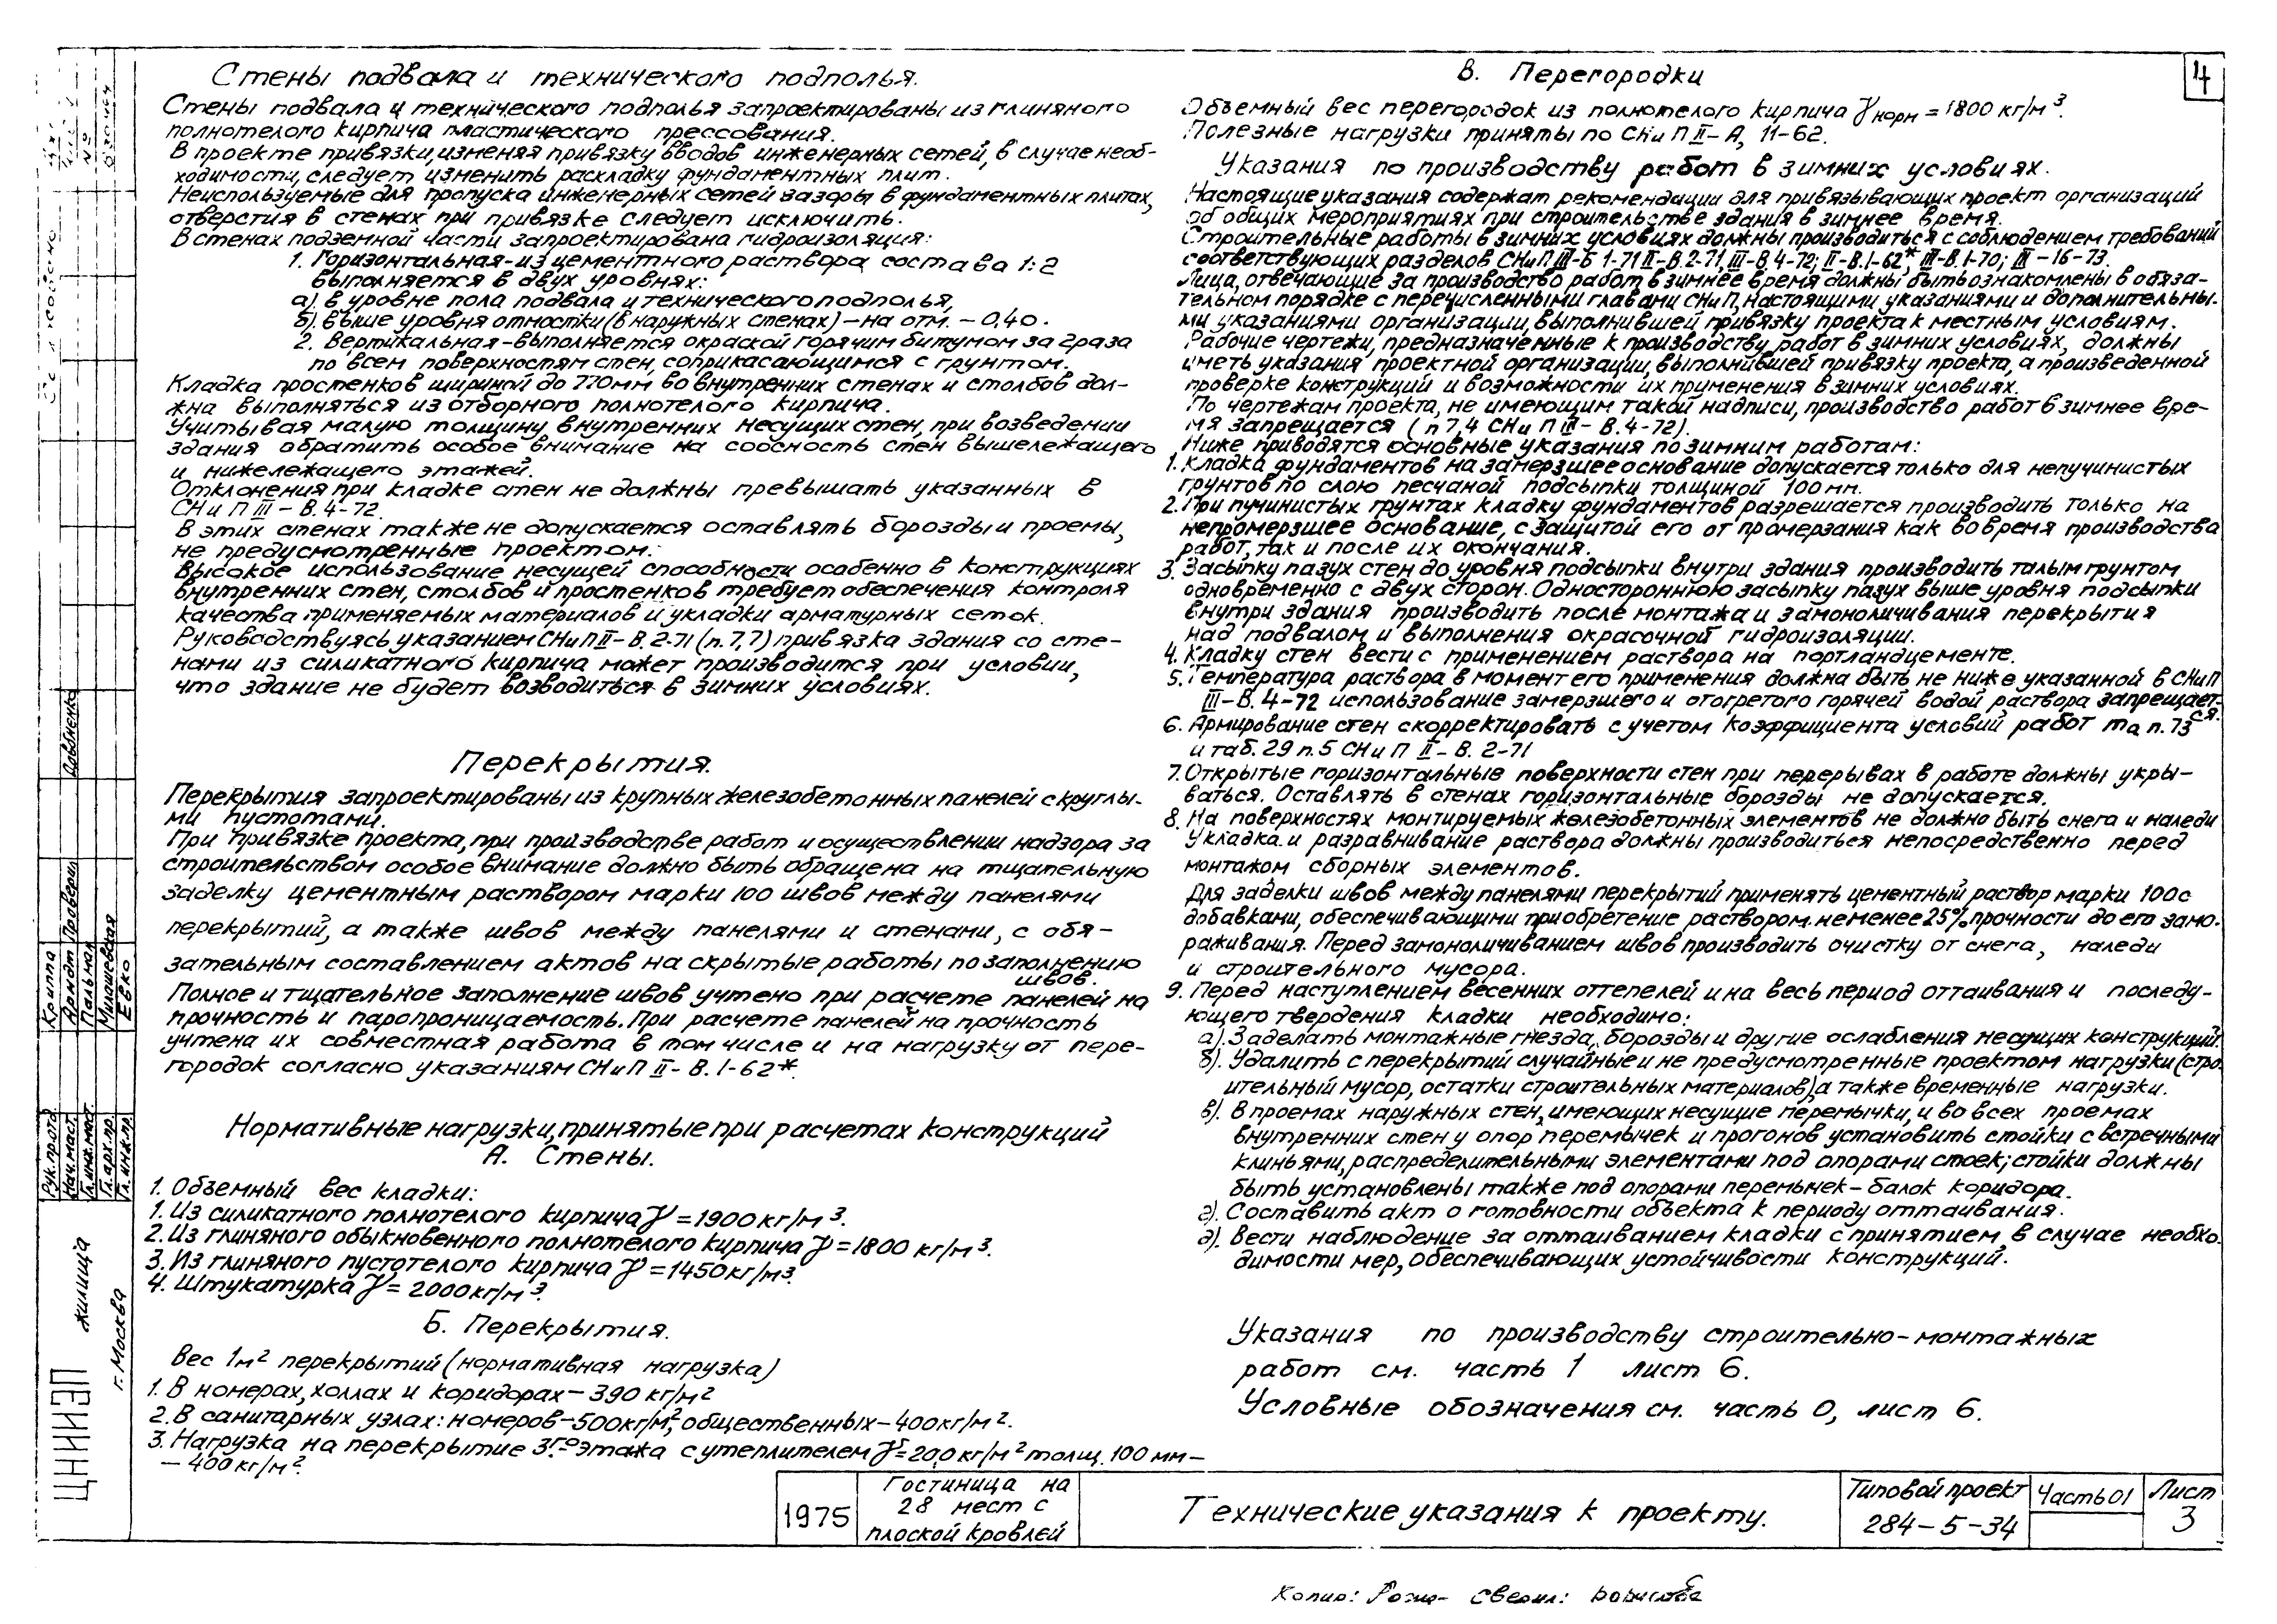 4
Стены подвала и технического подполья.
Стены подвала и технического подполья запроектированы из глиняного
полнотелого кирпича пластического прессования.
В проекте привязки, изменяя привязку вводов инженерных сетей, в случае необ-
ходимости, следует изменить раскладку фундаментных плит.
Неиспользуемые для пропуска инженерных сетей зазоры в фундаментных плитах,
отверстия в стенах при привязке следует исключить.
В стенах подземной части запроектирована гидроизоляция:
1. Горизонтальная-из цементного раствора состава 1:2
выполняется в двух уровнях:
а). в уровне пола подвала и технического подполья,
б). выше уровня отмостки (в наружных стенах) – на отм. – 0,40.
2. Вертикальная-выполняется окраской горячим битумом за 2 раза
по всем поверхностям стен, соприкасающимся с грунтом.
Кладка простенков шириной до 770мм во внутренних стенах и столбов дол-
жна выполняться из отборного полнотелого кирпича.
Учитывая малую толщину внутренних несущих стен, при возведении
здания обратить особое внимание на соосность стен вышележащего
и нижележащего этажей.
Отклонения при кладке стен не должны превышать указанных в
СНиП III – В. 4-72.
В этих стенах также не допускается оставлять борозды и проемы,
не предусмотренные проектом.
Высокое использование несущей способности особенно в конструкциях
внутренних стен, столбов и простенков требует обеспечения контроля
качества применяемых материалов и укладки арматурных сеток.
Руководствуясь указанием СНиП II – В. 2-71 (п. 7,7) привязка здания со сте-
нами из силикатного кирпича может производится при условии,
что здание не будет возводиться в зимних условиях.
Перекрытия.
Перекрытия запроектированы из крупных железобетонных панелей с круглы-
ми пустотами.
При привязке проекта, при производстве работ и осуществлении надзора за
строительством особое внимание должно быть обращена на тщательную
заделку цементным раствором марки 100 швов между панелями
перекрытий, а также швов между панелями и стенами, с обя-
зательным составлением актов на скрытые работы по заполнению
швов.
Полное и тщательное заполнение швов учтено при расчете панелей на
прочность и паропроницаемость. При расчете панелей на прочность
учтена их совместная работа в том числе и на нагрузку от пере-
городок согласно указаниям СНиП II – В. 1-62*.
Нормативные нагрузки, принятые при расчетах конструкций
А. Стены.
1. Объемный вес кладки:
1. Из силикатного полнотелого кирпича γ = 1900 кг/м³.
2. Из глиняного обыкновенного полнотелого кирпича γ = 1800 кг/м³.
3. Из глиняного пустотелого кирпича γ = 1450 кг/м³.
4. Штукатурка γ = 2000 кг/м³.
Б. Перекрытия.
Вес 1м² перекрытий (нормативная нагрузка)
1. В номерах, холлах и коридорах – 390 кг/м²
2. В санитарных узлах: номеров – 500 кг/м², общественных – 400 кг/м².
3. Нагрузка на перекрытие 3го этажа с утеплителем γ = 200 кг/м² толщ. 100 мм –
– 400 кг/м².
В. Перегородки
Объемный вес перегородок из полнотелого кирпича γ норм = 1800 кг/м³.
Полезные нагрузки приняты по СНиП II – А, 11-62.
Указания по производству работ в зимних условиях.
Настоящие указания содержат рекомендации для привязывающих проект организаций
об общих мероприятиях при строительстве здания в зимнее время.
Строительные работы в зимних условиях должны производиться с соблюдением требований
соответствующих разделов СНиП III-Б 1-71 II-В. 2-71, III-В. 4-72; II-В. 1-62*, III-В. 1-70; III – 16-73.
Лица, отвечающие за производство работ в зимнее время должны быть ознакомлены в обяза-
тельном порядке с перечисленными главами СНиП, настоящими указаниями и дополнительны-
ми указаниями организации, выполнившей привязку проекта к местным условиям.
Рабочие чертежи, предназначенные к производству работ в зимних условиях, должны
иметь указания проектной организации, выполнившей привязку проекта, а произведенной
проверке конструкций и возможности их применения в зимних условиях.
По чертежам проекта, не имеющим такой надписи, производство работ в зимнее вре-
мя запрещается (п 7,4 СНиП III – В. 4-72).
Ниже приводятся основные указания по зимним работам:
1. Кладка фундаментов на замерзшее основание допускается только для непучинистых
грунтов по слою песчаной подсыпки толщиной 100мм.
2. При пучинистых грунтах кладку фундаментов разрешается производить только на
непромерзшее основание, с защитой его от промерзания как во время производства
работ, так и после их окончания.
3. Засыпку пазух стен до уровня подсыпки внутри здания производить талым грунтом
одновременно с двух сторон. Одностороннюю засыпку пазух выше уровня подсыпки
внутри здания производить после монтажа и замоноличивания перекрытия
над подвалом и выполнения окрасочной гидроизоляции.
4. Кладку стен вести с применением раствора на портландцементе.
5. Температура раствора в момент его применения должна быть не ниже указанной в СНиП
III – В. 4-72 использование замерзшего и отогретого горячей водой раствора запрещает-
ся.
6. Армирование стен скорректировать с учетом коэффициента условий работ mа п. 73
и таб. 29 п. 5 СНиП II – В. 2-71
7. Открытые горизонтальные поверхности стен при перерывах в работе должны укры-
ваться. Оставлять в стенах горизонтальные борозды не допускается.
8. На поверхностях монтируемых железобетонных элементов не должно быть снега и наледи
Укладка и разравнивание раствора должны производиться непосредственно перед
монтажом сборных элементов.
Для заделки швов между панелями перекрытий применять цементный раствор марки 100 с
добавками, обеспечивающими приобретение раствором не менее 25% прочности до его замо-
раживания. Перед замоноличиванием швов производить очистку от снега, наледи
и строительного мусора.
9. Перед наступлением весенних оттепелей и на весь период оттаивания и последу-
ющего твердения кладки необходимо:
а). Заделать монтажные гнезда, борозды и другие ослабления несущих конструкций.
б). Удалить с перекрытий случайные и не предусмотренные проектом нагрузки (стро-
ительный мусор, остатки строительных материалов), а также временные нагрузки.
в). В проемах наружных стен, имеющих несущие перемычки, и во всех проемах
внутренних стен у опор перемычек и прогонов установить стойки с встречными
клиньями, распределительными элементами под опорами стоек; стойки должны
быть установлены также под опорами перемычек – балок коридора.
г). Составить акт о готовности объекта к периоду оттаивания.
д). Вести наблюдение за оттаиванием кладки с принятием в случае необхо-
димости мер, обеспечивающих устойчивости конструкций.
Указания по производству строительно-монтажных
работ см. часть 1 лист 6.
Условные обозначения см. часть 0, лист 6.
1975
Гостиница на
28 мест с
плоской кровлей
Технические указания к проекту.
Типовой проект
284-5-34
Часть 01
Лист
3
Копир: Сверил:
Рук. пр. отд. Криппа
Нач. маст. Арндт Проверил Довбненко
Гл. инж. маст. Пальман
Гл. арх. пр. Милашевская
Гл. инж. пр. Евко
ЦНИИЕП жилища
г. Москва